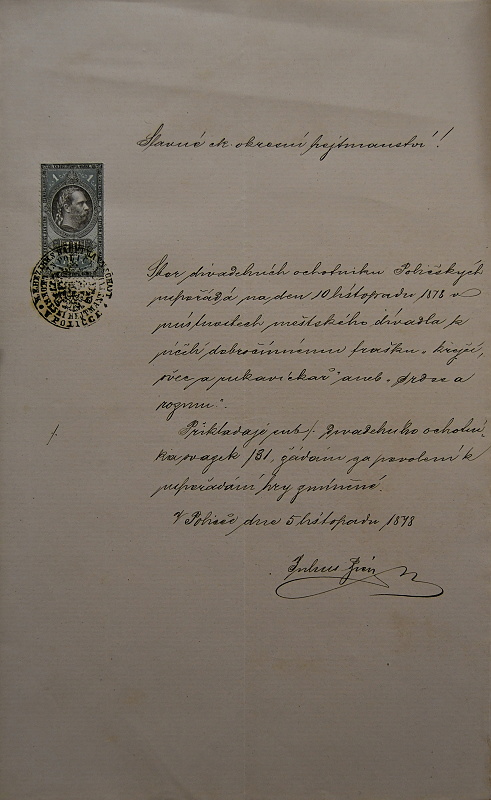 Slavné ck okresní hejtmanství!
Sbor divadelních ochotníku Poličských
uspořádá na den 10 listopadu 1878 v
místnostech městského divadla k
účeli dobročinnému frašku „krejčí,
ovec a rukavičkář" aneb „Srdce a
rozum".
Přikládaje sub /. Divadelního ochotní-
ka svazek 131, žádám za povolení k
uspořádání hry zmíněné.
V Poličce dne 5 listopadu 1878
Julius
1 1
POLICCE
/.